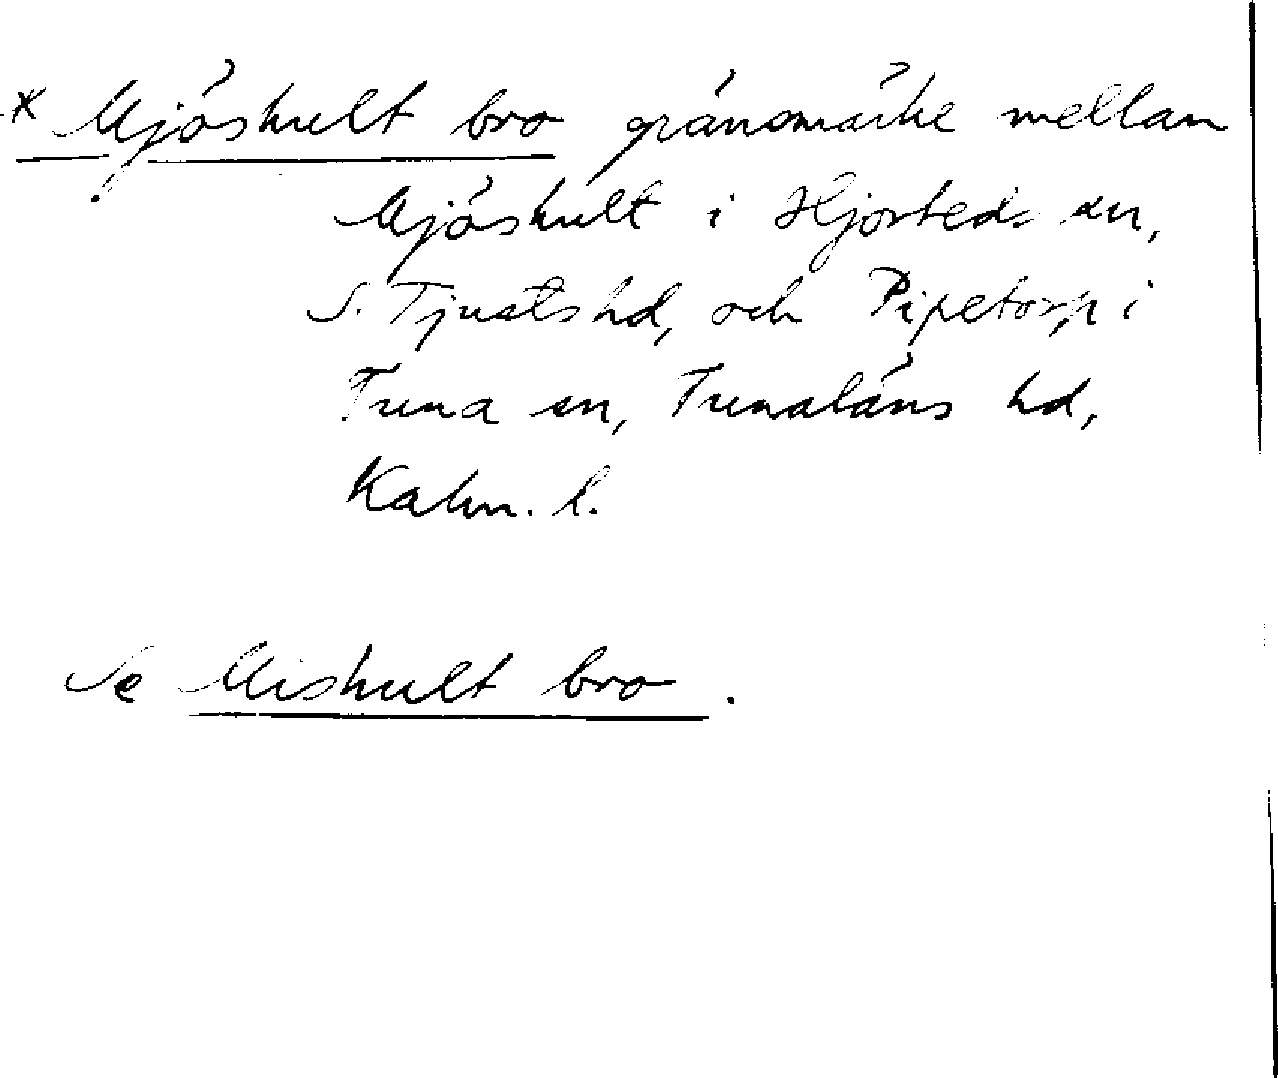 * Mjöshult bro gränsmärke mellan
Mjöshult i Hjorteds sn,
S. Tjusts hd, och Pipetorp i
Tuna sn, Tunaläns hd,
Kalm. l.
Se Mishult bro.